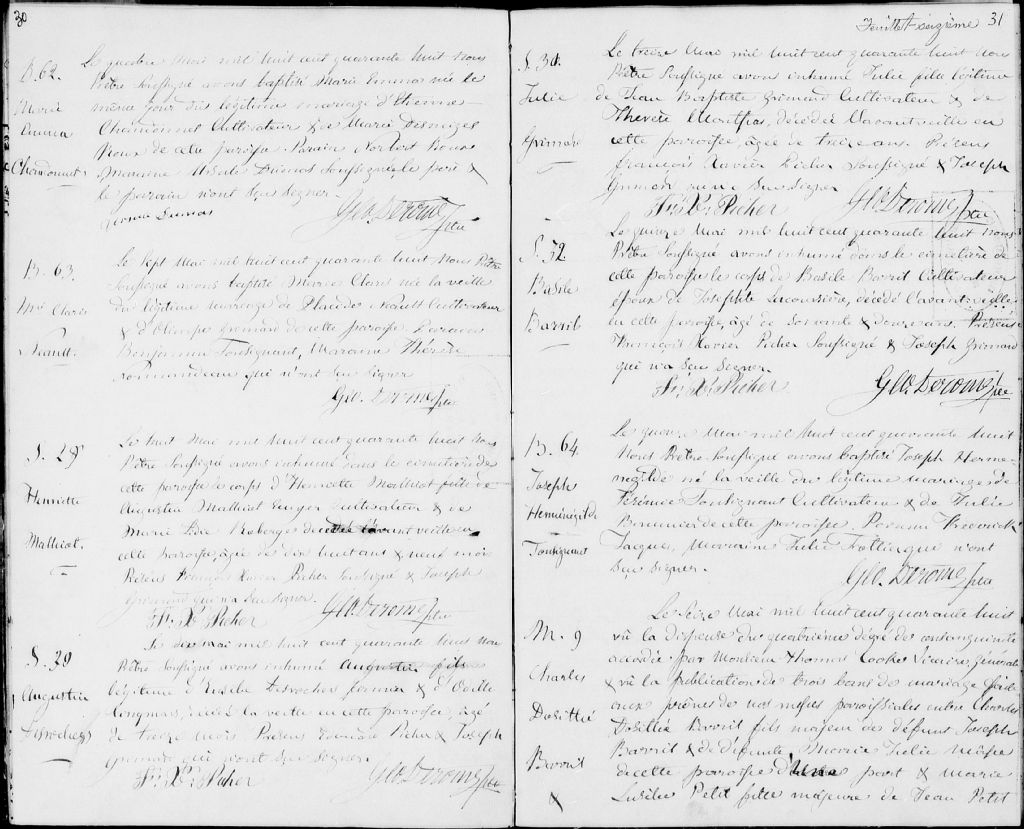 30
B. 62.
Marie
Emma
Chamionnet
Le quatre Mai mil huit cent quarante huit Nous
Prêtre Soussigné avons baptisé Marie Emma née le
même jour du légitime mariage d'Etienne
Cultivateur & de Marie
de cette paroisse Parain Norbert
Maraine Ursule Dumas soussignée, le père &
le parrain n'ont su signer
Dumas
Geo. Derome Ptre
B. 63.
Mie Claris
Neault.
Le Sept Mai mil huit cent quarante huit Nous Prêtre
Soussigné avons baptisé Marie Claris née la veille
du légitime mariage de Placide Neault Cultivateur
& d'Olimpe Grimard de cette paroisse Parrain
Benjamin Tousignant, Maraine Thérèse
Normandeau qui n'ont su signer
Geo. Derome Ptre
S. 29
Henriette
Mathiot.
Le huit Mai mil huit cent quarante huit Nous
Prêtre Soussigné avons inhumé dans le cimetière de
cette paroisse le corps d'Henriette Mathiot fille de
Augustin Mathiot Cultivateur & de
Marie Roberge décédée l'avant veille en
cette paroisse, agée de dix huit ans & neuf mois
Présens François Xavier Picher Soussigné & Joseph
Grimard qui n'a su signer.
Fr. Xr. Picher
Geo. Derome Ptre
S. 30
Augustin
Desrochers
Le dix mai mil huit cent quarante huit Nous
Prêtre Soussigné avons inhumé Augustin fils
légitime d'Eusèbe Desrochers fermier & d'Odille
Longmais, décédé la veille en cette paroisse, agé
de treize mois Présens Edouard Picher & Joseph
Grimard qui n'ont su signer.
Fr. Xr. Picher
Geo. Derome Ptre
Feuillet seizième 31
S. 31.
Julie
Grimard
Le treize Mai mil huit cent quarante huit Nous
Prêtre Soussigné avons inhumé Julie fille légitime
de Jean Baptiste Grimard Cultivateur & de
Thérèse Montfas, décédée l'avant veille en
cette paroisse, agée de treize ans. Présens
François Xavier Picher Soussigné & Joseph
Grimard qui n'a su signer
Fr. Xr. Picher
Geo. Derome Ptre
S. 32
Basile
Barril
Le quinze Mai mil huit cent quarante huit Nous
Prêtre Soussigné avons inhumé dans le cimetière de
cette paroisse le corps de Basile Barril Cultivateur
époux de Josephte Lacoursière, décédé l'avant veille
en cette paroisse, agé de soixante & douze ans. Présens
François Xavier Picher Soussigné & Joseph Grimard
qui n'a su signer.
Fr. Xr. Picher
Geo. Derome Ptre
B. 64
Joseph
Herménégilde
Tousignant
Le quinze Mai mil huit cent quarante huit
Nous Prêtre Soussigné avons baptisé Joseph Herme-
négilde né la veille du légitime mariage de
Jérémie Tousignant Cultivateur & de Julie
de cette paroisse, Parain Frederick
Jacques, Maraine Julie Trottier qui n'ont
su signer.
Geo. Derome Ptre
M. 9
Charles
Dosithé
Barril
&
Le seize Mai mil huit cent quarante huit
vû la dispense du quatrième dégré de consanguinité
accordée par Monsieur Thomas Cooke Vicaire Général
& vû la publication de trois bans de mariage faite
aux prônes de nos messes paroissiales entre Charles
Dosithé Barril fils majeur de défunt Joseph
Barril & de défunte Marie Julie
de cette paroisse d'Une part & Marie
Lucile Petit fille majeure de Jean Petit